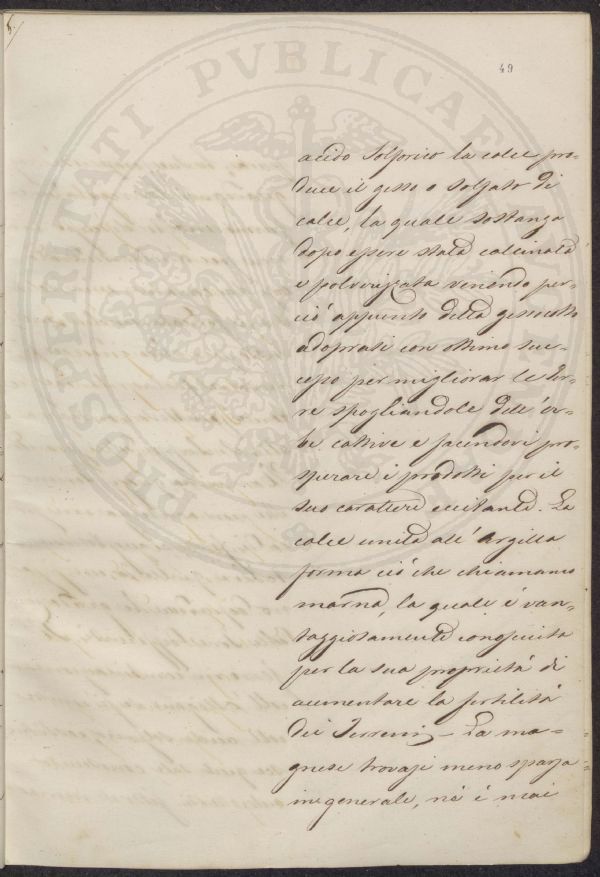 49
acido Solforico la calce pro-
duce il gesso o solfato di
calce, la quale sostanza
dopo essere stata calcinata
e polverizzata venendo per-
ciò appunto detta gesso cotto
adoprasi con ottimo suc-
cesso per migliorar le ter-
re spogliandole dell'er-
be cattive e facendovi pro-
sperare i prodotti per il
suo carattere eccitante. La
calce unita all'Argilla
forma ciò che chiamano
marna, la quale è van-
taggiosamente conosciuta
per la sua proprietà di
aumentare la fertilità
dei Terreni - La ma-
gnese trovasi meno sparsa
in generale, nè è mai
PROSPERITATI PVBLICAE